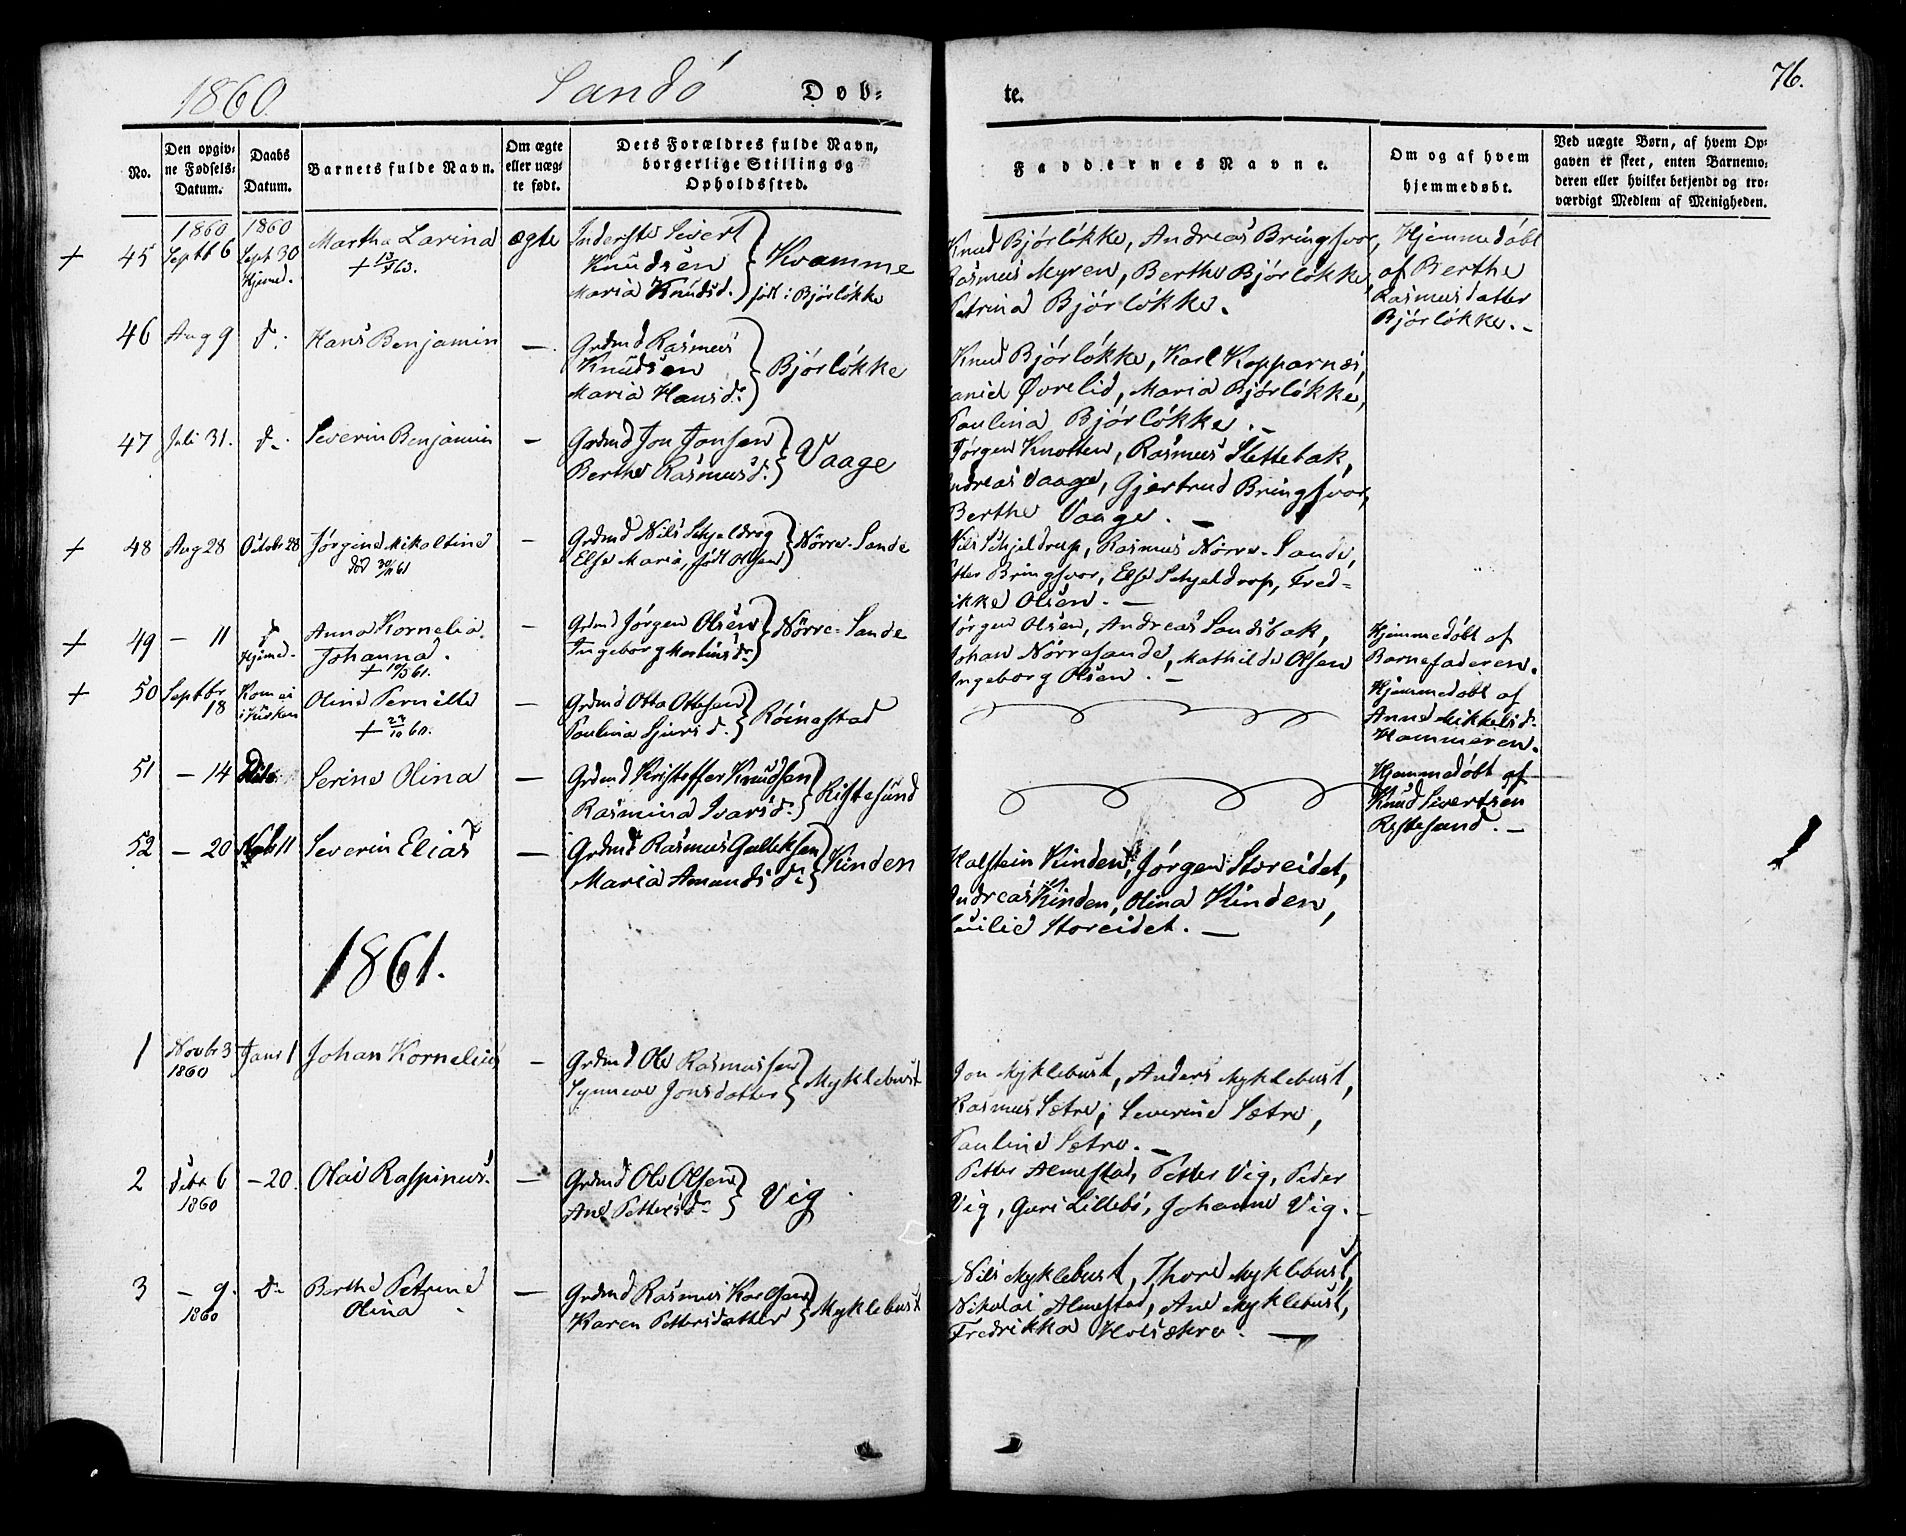 1860. Sandö Døb-
te. 76.
No.
Den opgiv-
ne Fødsels-
Datum.
Daabs
Datum.
Barnets fulde Navn.
Om ægte
eller uæg-
te født.
Dets Forældres fulde Navn,
borgerlige Stilling og
Opholdssted.
Faddernes Navne.
Om og af hvem
hjemmedøbt.
Ved uægte Børn, af hvem Op-
gaven er skeet, enten Barnemo-
deren eller hvilket bekjendt og tro-
værdigt Medlem af Menigheden.
1860 1860
+ 45 Septb 6 Sept 30 Martha Larina ægte Inderste Sivert
Hjemd. Knudsen Kvamme
Maria Knudsd. født: Bjórlókke
Knud Bjórlókke, Andreas Bringsvor,
Rasmus Myren, Berthe Bjórlókke,
Petrina Bjórlókke.
Hjemmedöbt
af Berthe
Rasmusdatter
Bjórlókke.-
46 Aug 9 do: Hans Benjamin - Grdmd Rasmus
Knudsen Bjórlókke
Maria Hansdr.
Knud Bjórlókke, Karl Kopparnæs,
Øvrelid, Maria Bjórlókke,
Paulina Bjórlókke.-
47 Juli 31. do. Severin Benjamin - Grdmd Jon Jonsen
Berthe Rasmusd. Vaage
Jørgen Knotten, Rasmus Slettebak,
Andreas Vaage, Gjertrud Bringsvor,
Berthe Vaage. -
+ 48 Aug 28 Octobr 28 Jørgine Mikaltine - Grdmd Nils Schjeldrop
død 30/11 61 Else Maria, født Olsen Nörre-Sande
Nils Schjeldrup, Rasmus Nörre-Sande,
Petter Bringsvor, Else Schjeldrop, Fred-
rikke Olsen. -
+ 49 - 11 do Anna Kornelia - Grdmd Jørgen Olsen
Hjemd. Johanna. Ingeborg Martinsdr Nörre-Sande
Jørgen Olsen, Andreas Sandsbak,
Johan Nörresande, Mathilde Olsen
Ingeborg Olsen. -
Hjemmedöbt af
Barnefaderen.
+ 50 Septbr 18 Kom ei
i Kirken Oline Pernille Grdmd Otto Ottesen
Paulina Sjursd. Röinestad
Hjemmedöbt af
Anne Mikkelsd.
Hammeren.
51 - 14 Serine Olina - Grdmd Kristoffer Knudsen
Rasmina Ivarsd. Ristesund
Hjemmedöbt af
Knud Sivertsen
Ristesund. -
52 - 20 11 Severin Elias - Grdmd Rasmus Gulleksen
Maria Amundsdr. Kinden
Halstein Kinden, Jørgen Storeidet,
Andreas Kinden, Olina Kinden,
Storeidet. -
1861.
1 Novbr 3 Janr 1 Johan Kornelius - Grdmd Ole Rasmussen
1860 Synneve Jonsdatter Myklebust
Jon Myklebust, Anders Myklebust,
Rasmus Sætre, Severine Sætre,
Pauline Sætre. -
2 Debr 6 - 20. Olai Raspinus. - Grdmd Ole Olsen
1860 Ane Pettersdr Vig
Petter Almestad, Petter Vig, Peder
Vig, Guri Lillebö, Johanne Vig. -
3 - 9. do Berthe Petrine - Grdmd Rasmus Karlsen
1860 Olina Karen Pettersdatter Myklebust
Nils Myklebust, Thore Myklebust,
Nikolai Almestad, Ane Myklebust,
Fredrikka Holsækre. -